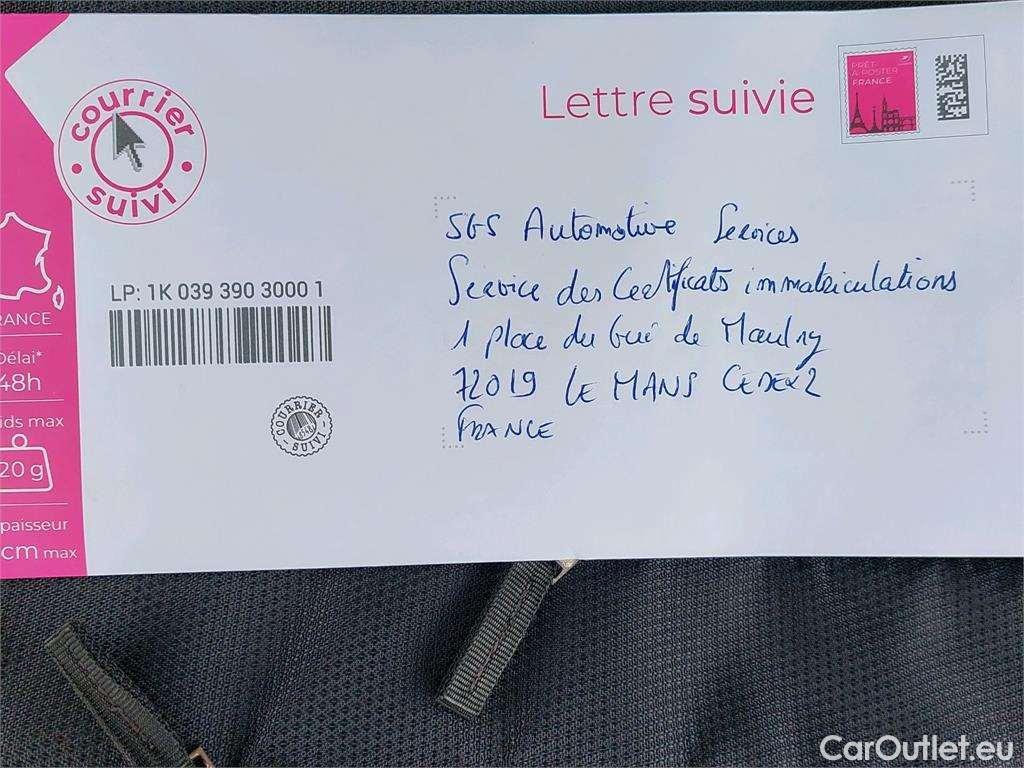 Lettre suivie
PRÊT-
À-POSTER
FRANCE
courrier
suivi
SGS Automotive Services
Service des Certificats immatriculations
LP: 1K 039 390 3000 1
1 place du Gué de Maulny
72019 LE MANS CEDEX 2
FRANCE
COURRIER
SUIVI
RANCE
Délai*
48h
ids max
20 g
paisseur
cm max
CarOutlet.eu